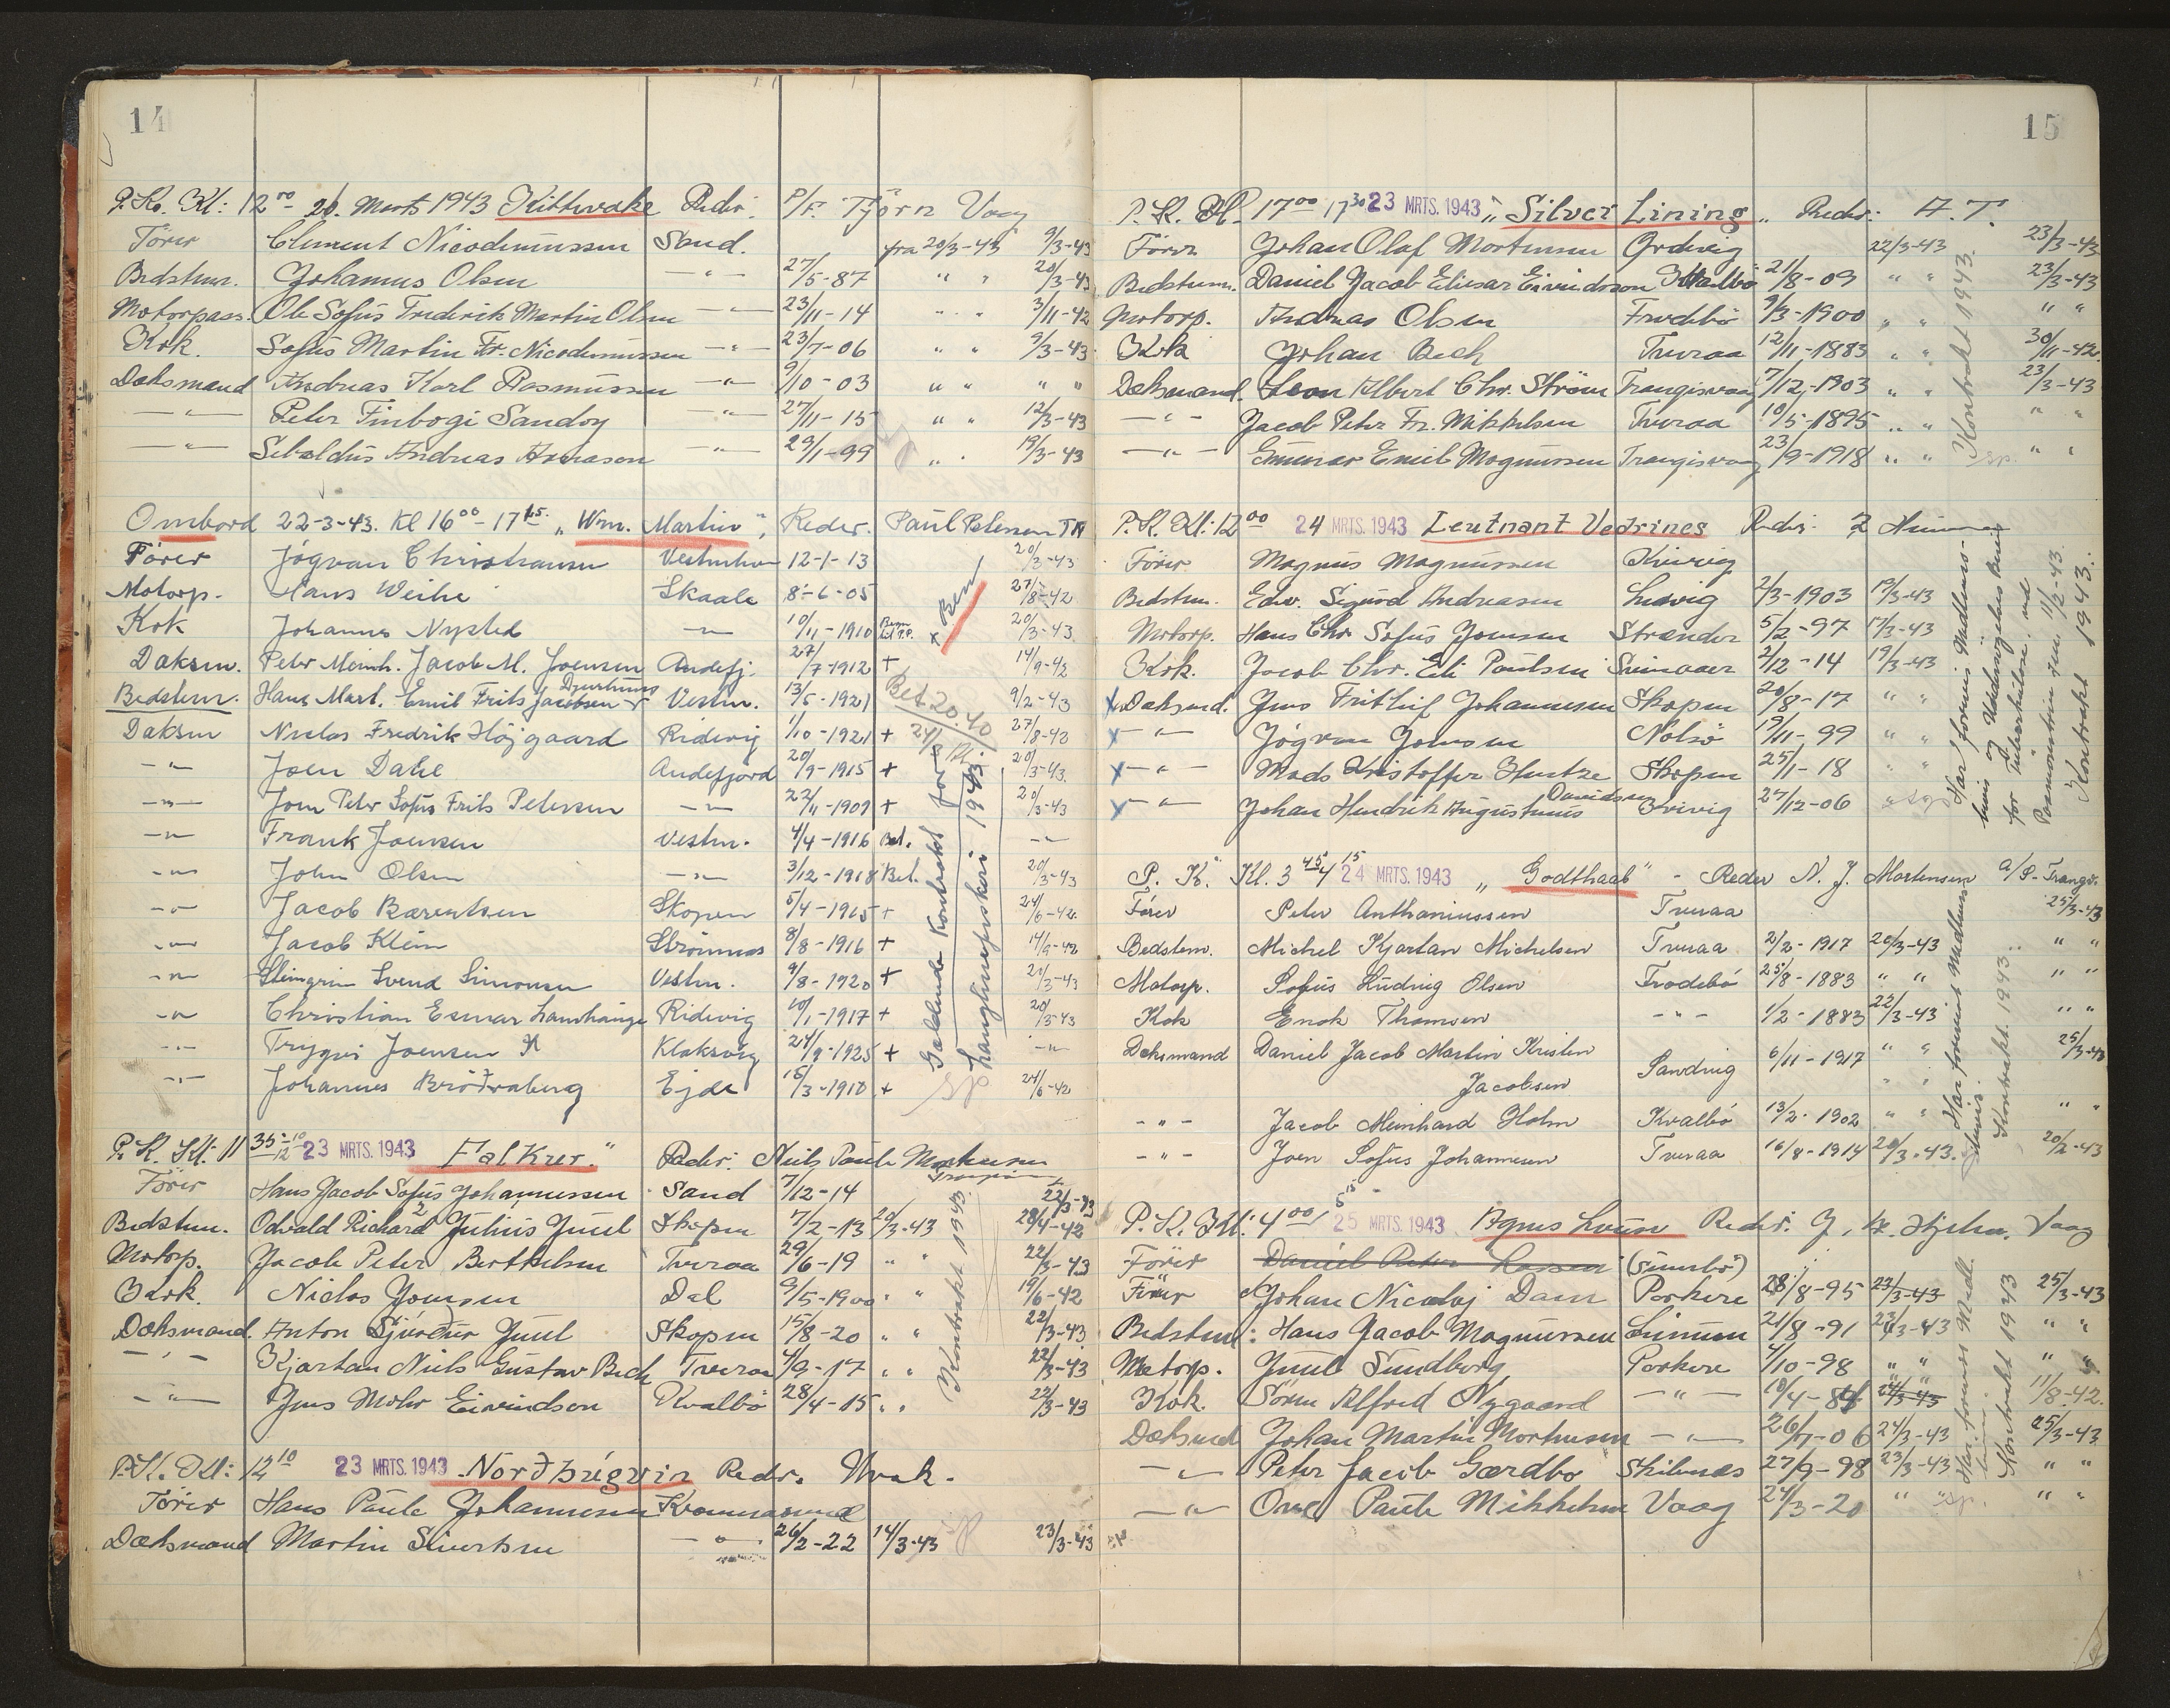 14
P.K. Kl: 12⁰⁰ - 26. Marts 1943 Kittivake Reder. P/F. Tjörn Vaag
Förer Clement Nicodemussen Sand. fra 20/3-43 9/3-43
Bedstem. Johannus Olsen -"- 27/5-87 " " 20/3-43
Motorpass. Ole Sofus Frederik Martin Olsen -"- 23/11-14 " " 3/11-42
Kok. Sofus Martin Fr. Nicodemussen -"- 23/7-06 " " 9/3-43
Dæksmand Andreas Karl Rasmussen -"- 9/10-03 " " " "
-"- Peter Finbogi Sandoy -"- 27/11-15 " " 12/3-43
-"- Sibaldus Andreas -"- 29/1-99 " " 19/3-43
Ombord 22-3-43. Kl 16⁰⁰-17¹⁵ "Wm. Martin", Reder. Paul Petersen TN
Förer Jógvan Christiansen Vestmhvn 12-1-13 20/3-43
Motorp. Hans Weihe Skaale 8-6-05 27/8-42
Kok Johannes Nysted -"- 10/11-1910 20/3-43.
Daksm. Peter Meinh. Jacob M. Joensen Andefj. 27/7-1912 + 14/9-42
Bedstem. Hans Mart. Emil Frits Jacobsen Djurhuus Vestm. 13/5-1921 9/2-43
Daksm Niclas Fredrik Höjgaard Ridevig 1/10-1921 + 27/8-43
-"- Joen Dahl Andefjord 20/9-1915 + 20/3-43.
-"- Joen Peter Sofus Frits Petersen -"- 22/11-1909 + 20/3-43
-"- Frank Joensen Vestm. 4/4-1916 Bet. -"-
-"- John Olsen -"- 3/12-1918 Bet. 20/3-43
-"- Jacob Bærentsen Skopen 5/4-1915 + 24/6-42
-"- Jacob Klein Strömnæs 8/8-1916 + 14/9-42
-"- Steingrim Svend Simonsen Vestm. 9/8-1920 + 20/3-43
-"- Christian Esmar Lamhauge Ridevig 10/1-1917 + 20/3-43
-"- Trygvi Joensen Klaksvig 24/9-1925 + -"-
-"- Johannes Bróðraberg Ejde 15/3-1910 + 24/6-42
Bet. 20.40
Galdende Kontrakt for
Langlinefiskeri 1943.
P.K. Kl: 11³⁵-12¹⁰ 23 MRTS. 1943 Falkur." Reder. Niels Paule
Förer Hans Jacob Sofus Johannessen Sand 7/12-14 22/3-43
Bedstem. Odvald Richard Julius Juul Skopen 7/2-13 20/3-43 28/4-42
Motorp. Jacob Peter Berthelsen Tveraa 29/6-19 " " 22/3-43
Kok. Niclas Joensen Dal 9/5-1900 " " 19/6-42
Dæksmand. Anton Sjurður Juul Skopen 15/8-20 " " 22/3-43
-"- Kjartan Niels Gustav Bech Tveraa 4/9-17 " " 22/3-43
-"- Jens Mohr Eivindson Kvalbö 28/4-15 " " 22/3-43
Kontrakt 1943.
P.K. Kl: 12¹⁰ 23 MRTS. 1943 Norðbúgvin Reder.
Förer Hans Paule Johannesen
Dæksmand Martin Sivertsen -"- 26/2-22 14/3-43 23/3-43
15
P.K. Kl. 17⁰⁰ 17³⁰ 23 MRTS. 1943 "Silver Lining" Reder: A.T.
Förer Johan Olaf Mortensen Ördevig 22/3-43 23/3-43
Bedstem. Daniel Jacob Eliesar Eivindsson Kvalbö 21/8-09 " " 23/3-43
Motorp. Andreas Olsen Frodebö 9/3-1900 " " " "
Kok Johan Bech Tveraa 12/11-1883 " " 30/11-42.
Dæksmand. Leon Albert Chr. Ström Trangisvaag 7/12-1903 " " 23/3-43
-"- Jacob Peter Fr. Mikkelsen Tveraa 10/5-1895 " " " "
-"- Gunnar Emil Magnussen Trangisvaag 23/9-1918 " " " "
Kontrakt 1943.
P.K. Kl: 12⁰⁰ 24 MRTS. 1943 Leutnant Vedrines Reder:
Förer. Magnus Magnussen Kvivig
Bedstem. Edv. Sigurd Andreasen 2/3-1903 19/3-43
Motorp. Hans Chr. Sofus Joensen Strænder 5/2-97 17/3-43
Kok. Jacob Chr. Eli Poulsen 2/12-14 19/3-43
x Dæksmd. Jens Frithif Johannesen Skopen 20/8-17 " "
x -"- Jógvan Joensen Nolsö 19/11-99 " "
x -"- Mads Kristoffer Hentze Skopen 25/1-18 " "
x -"- Johan Hendrik Augustinus Davidsen Kvivig 27/12-06 "
Kontrakt 1943.
P. K. Kl. 3⁴⁵ 4¹⁵ 24 MRTS. 1943 "Godthaab" - Reder N. J. Mortensen A/S. Trangv.
Förer Peter Anthoniussen Tveraa 25/3-43
Bedstem. Michel Kjartan Michelsen Tveraa 2/2-1917 20/3-43 " "
Motorp. Sofus Ludvig Olsen Frodebö 25/8-1883 " " " "
Kok Enok Thomsen -"- 1/2-1883 22/3-43 " "
Dæksmand Daniel Jacob Martin Kristen
Jacobsen Sandvig 6/11-1917 " " 25/3-43
-"- Jacob Meinhard Holm Kvalbö 13/2-1902 " " " "
-"- Joen Sofus Johannesen Tveraa 16/8-1914 20/3-43. 20/2-43
Kontrakt. 1943.
P.K. Kl: 4⁰⁰/5¹⁵ 25 MRTS. 1943 Agnus Louise Reder. Vaag
Förer Daniel Peter Larsen (Sumbö)
Förer Johan Nicolaj Dam Porkere 28/8-95 23/3-43 25/3-43
Bedstem: Hans Jacob Magnussen 21/8-91 23/3-43 " "
Motorp. Juul Sundberg Porkere 4/10-98 " " " "
Kok. Sören Alfred Nygaard -"- 10/4-84 24/3-43 11/8-42.
Dæksmd Johan Martin Mortensen -"- 26/7-06 24/3-43 25/3-43
-"- Peter Jacob Gærdbo Skibenæs 27/9-98 23/3-43 " "
-"- Ove Paule Mikkelsen Vaag 24/3-20 " " " "
Kontrakt 1943